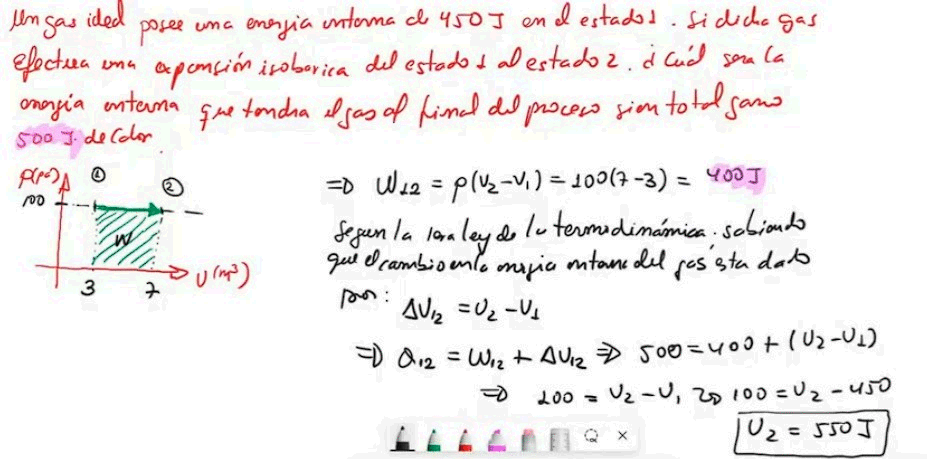 Un gas ideal posee una energia interna de 450 J en el estado 1. Si dicho gas
efectua una expansión isobarica del estado 1 al estado 2. ¿Cuál sera la
energía interna que tendra el gas al final del proceso si en total gano
500 J. de calor.
P(Pa) ① ②
100
W
V(m³)
3 7
=> W12 = p(V2-V1) = 100(7-3) = 400J
Segun la 1era ley de la termodinámica. sabiendo
que el cambio en la energia interna del gas esta dado
por:
ΔU12 = U2 - U1
=> Q12 = W12 + ΔU12 => 500 = 400 + (U2-U1)
=> 100 = U2 - U1 => 100 = U2 - 450
U2 = 550 J